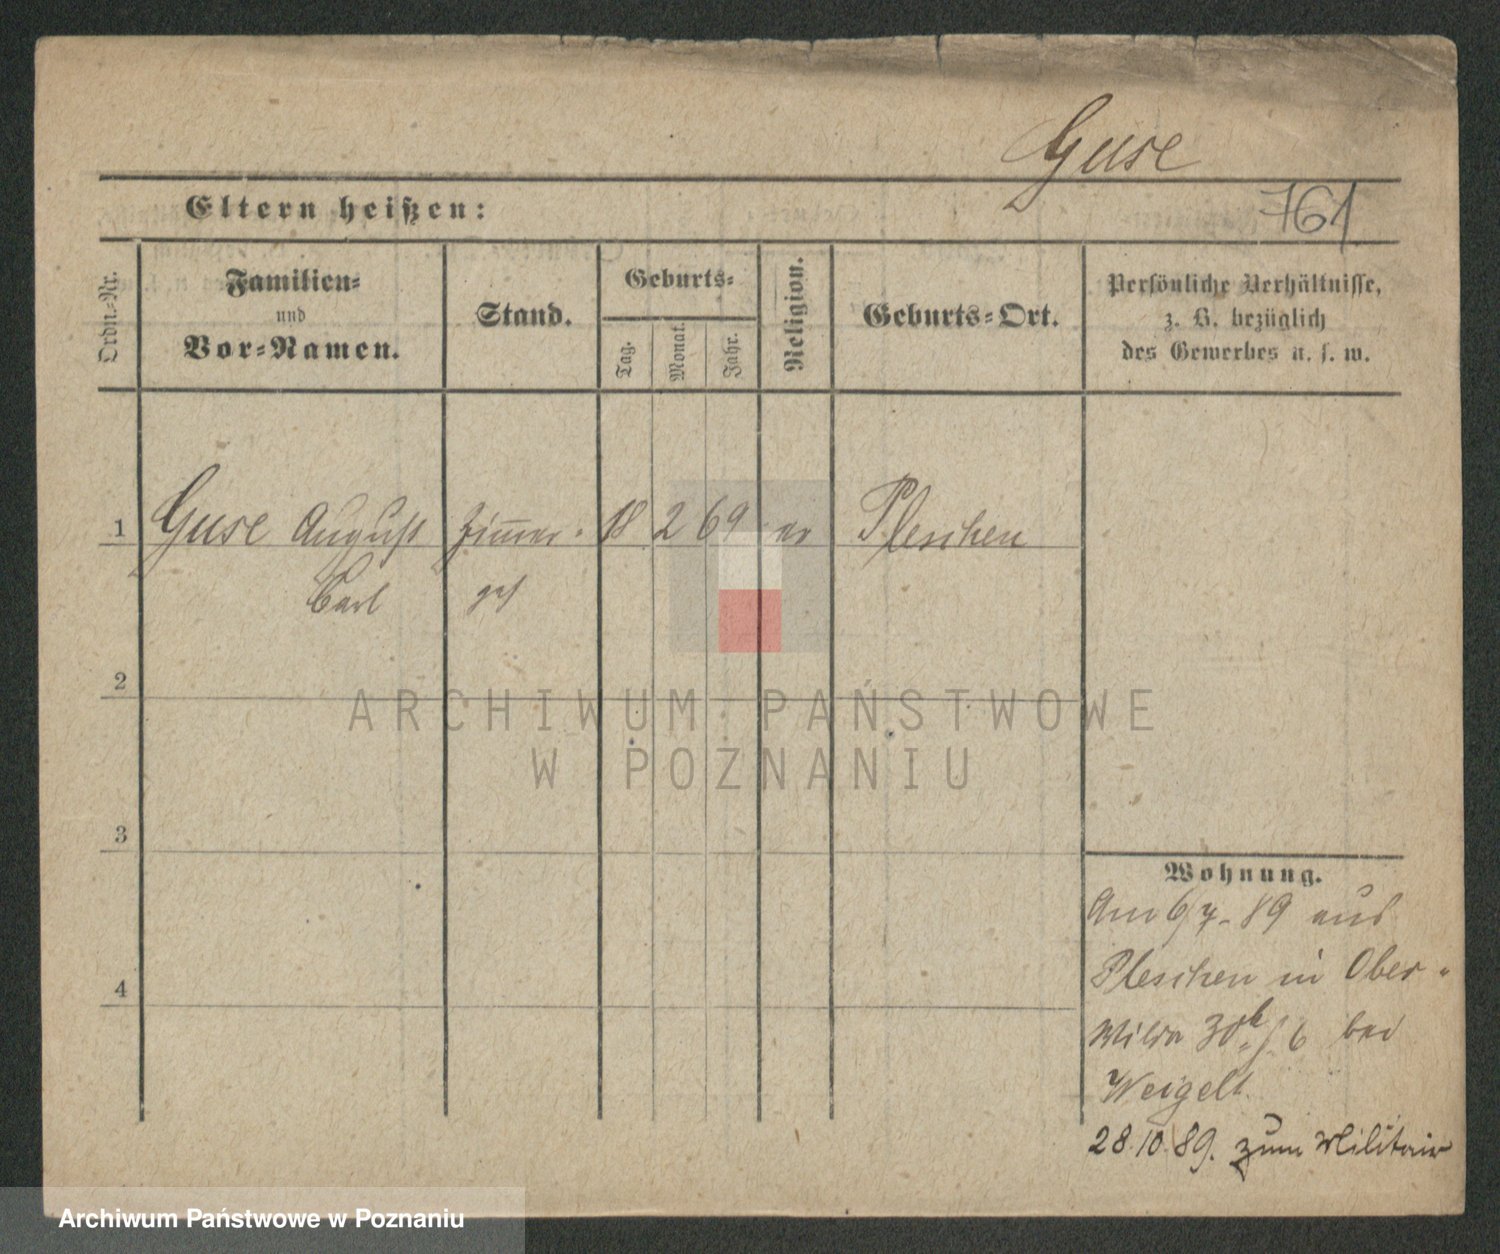 Guse
Eltern heißen:
761
Ordn.-Nr.
Familien-
und
Vor-Namen.
Stand.
Geburts-
Tag.
Monat.
Jahr.
Religion.
Geburts-Ort.
Persönliche Verhältnisse,
z. B. bezüglich
des Gewerbes u. s. w.
1 Guse August Zimmer- 18 2 69 ev Pleschen
Carl ges
2
3
4
Wohnung.
Am 6/7-89 aus
Pleschen in Ober-
Wilda 30 6 bei
Weigelt.
28.10.89. zum Militair
ARCHIWUM PAŃSTWOWE
W POZNANIU
Archiwum Państwowe w Poznaniu